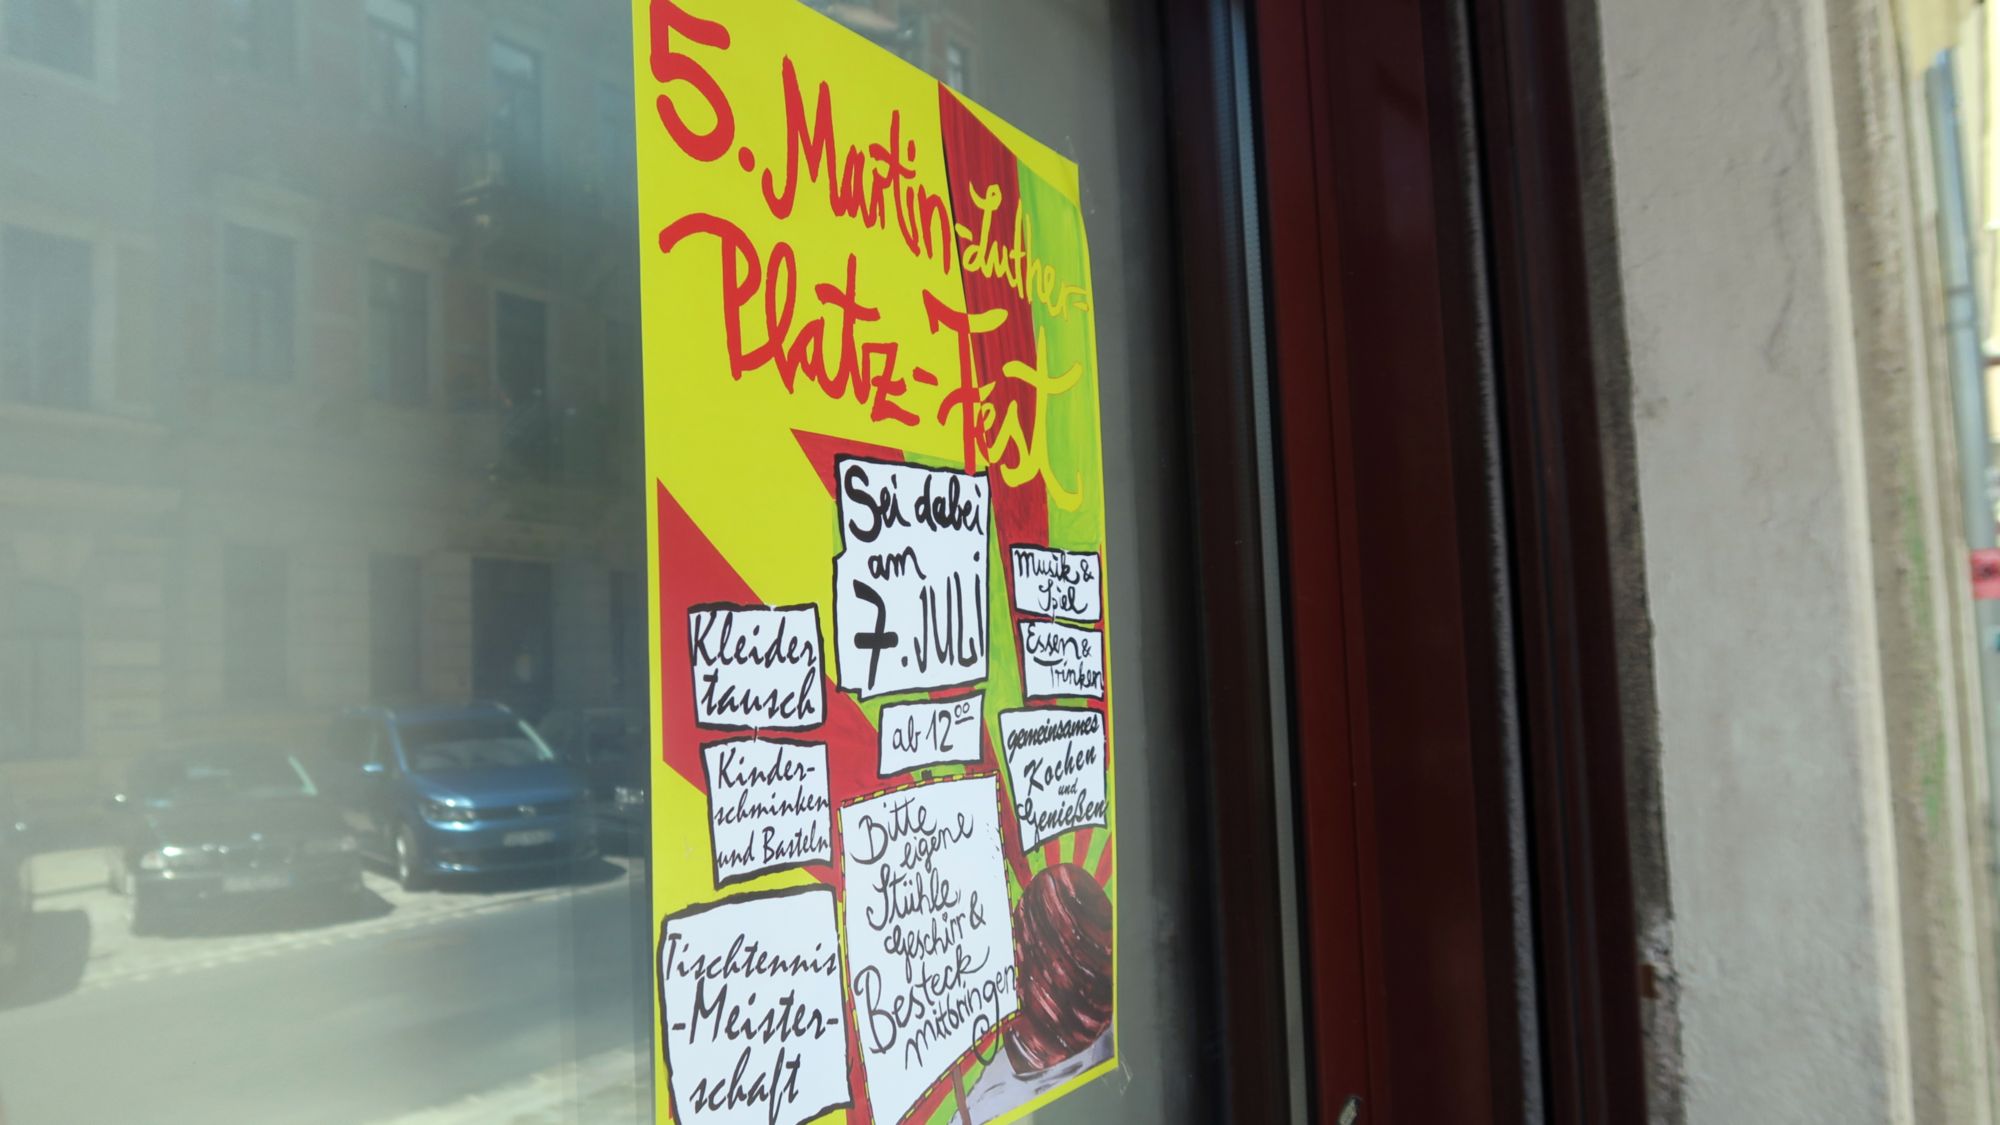 5. Martin-Luther-
Platz-Fest
Sei dabei
am
7. JULI
ab 12⁰⁰
Kleider
tausch
Kinder-
schminken
und Basteln
Tischtennis
-Meister-
schaft
Musik &
Spiel
Essen &
Trinken
gemeinsames
Kochen
und
Genießen
Bitte
eigene
Stühle,
Geschirr &
Besteck
mitbringen